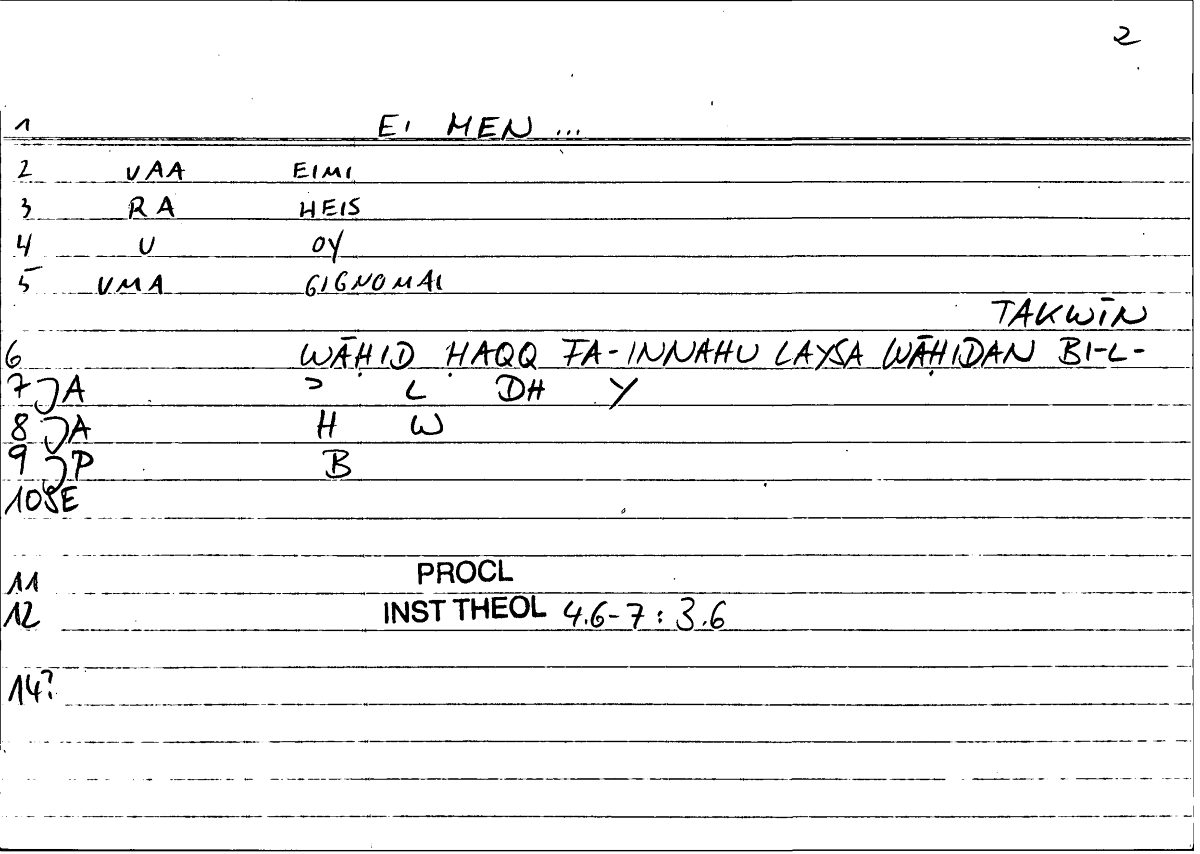 2
1 EI MEN ...
2 VAA EIMI
3 RA HEIS
4 U OY
5 VMA GIGNOMAI
TAKWĪN
6 WĀḤID ḤAQQ FA-INNAHU LAYSA WĀḤIDAN BI-L-
7 JA ʾ L DH Y
8 JA H W
9 JP B
10 SE
11 PROCL
12 INST THEOL 4.6-7 : 3.6
14?